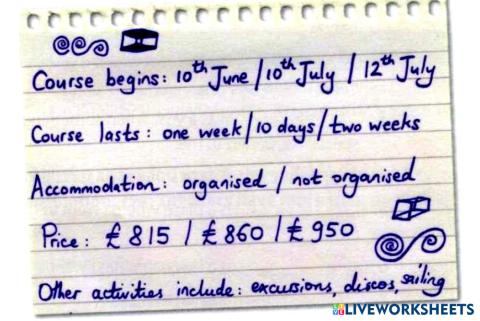 Course begins: 10th June / 10th July / 12th July
Course lasts: one week / 10 days / two weeks
Accommodation: organised / not organised
Price: £815 / £860 / £950
Other activities include: excursions, discos, sailing
LIVEWORKSHEETS